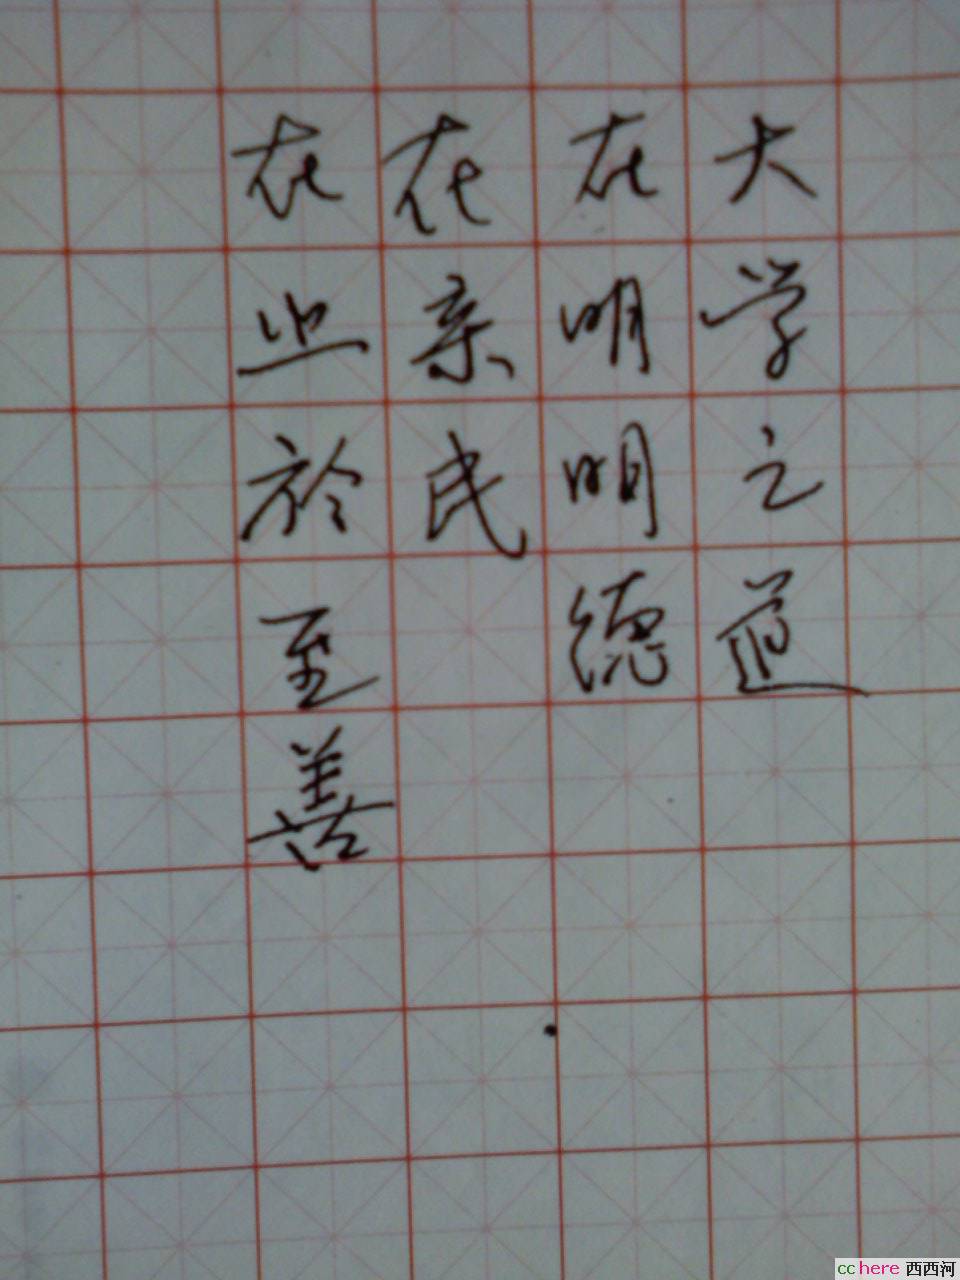 大学之道
在明明德
在亲民
在止於至善
cchere 西西河